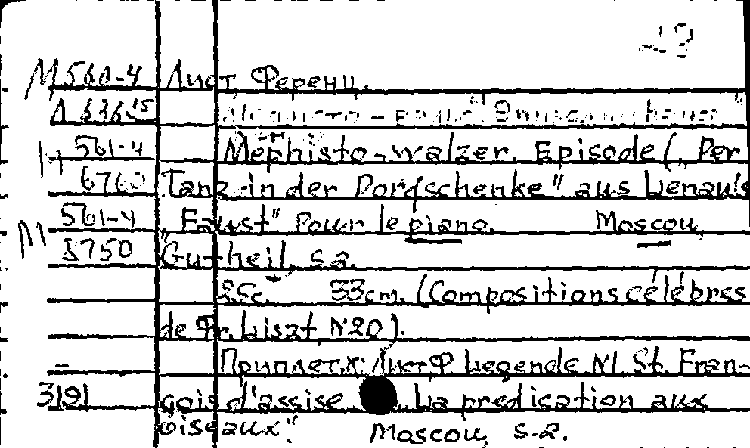 М 560-4 Лист, Ференц.
Л 636 15 Мефисто-вальс
561-4 Mephisto-walzer. Episode („Der
6760 Tanz in der Dorfschenke" aus Lenau's
М 561-4 „Faust" Pour le piano. Moscou,
8750 Gutheil, s.a.
25c. 33cm. (Compositions célèbres
de Fr. Liszt, N20).
Приплет.к: Лист Ф Legende N1. St. Fran-
3191 çois d'assise. La predication aux
oiseaux". Moscou, s.a.